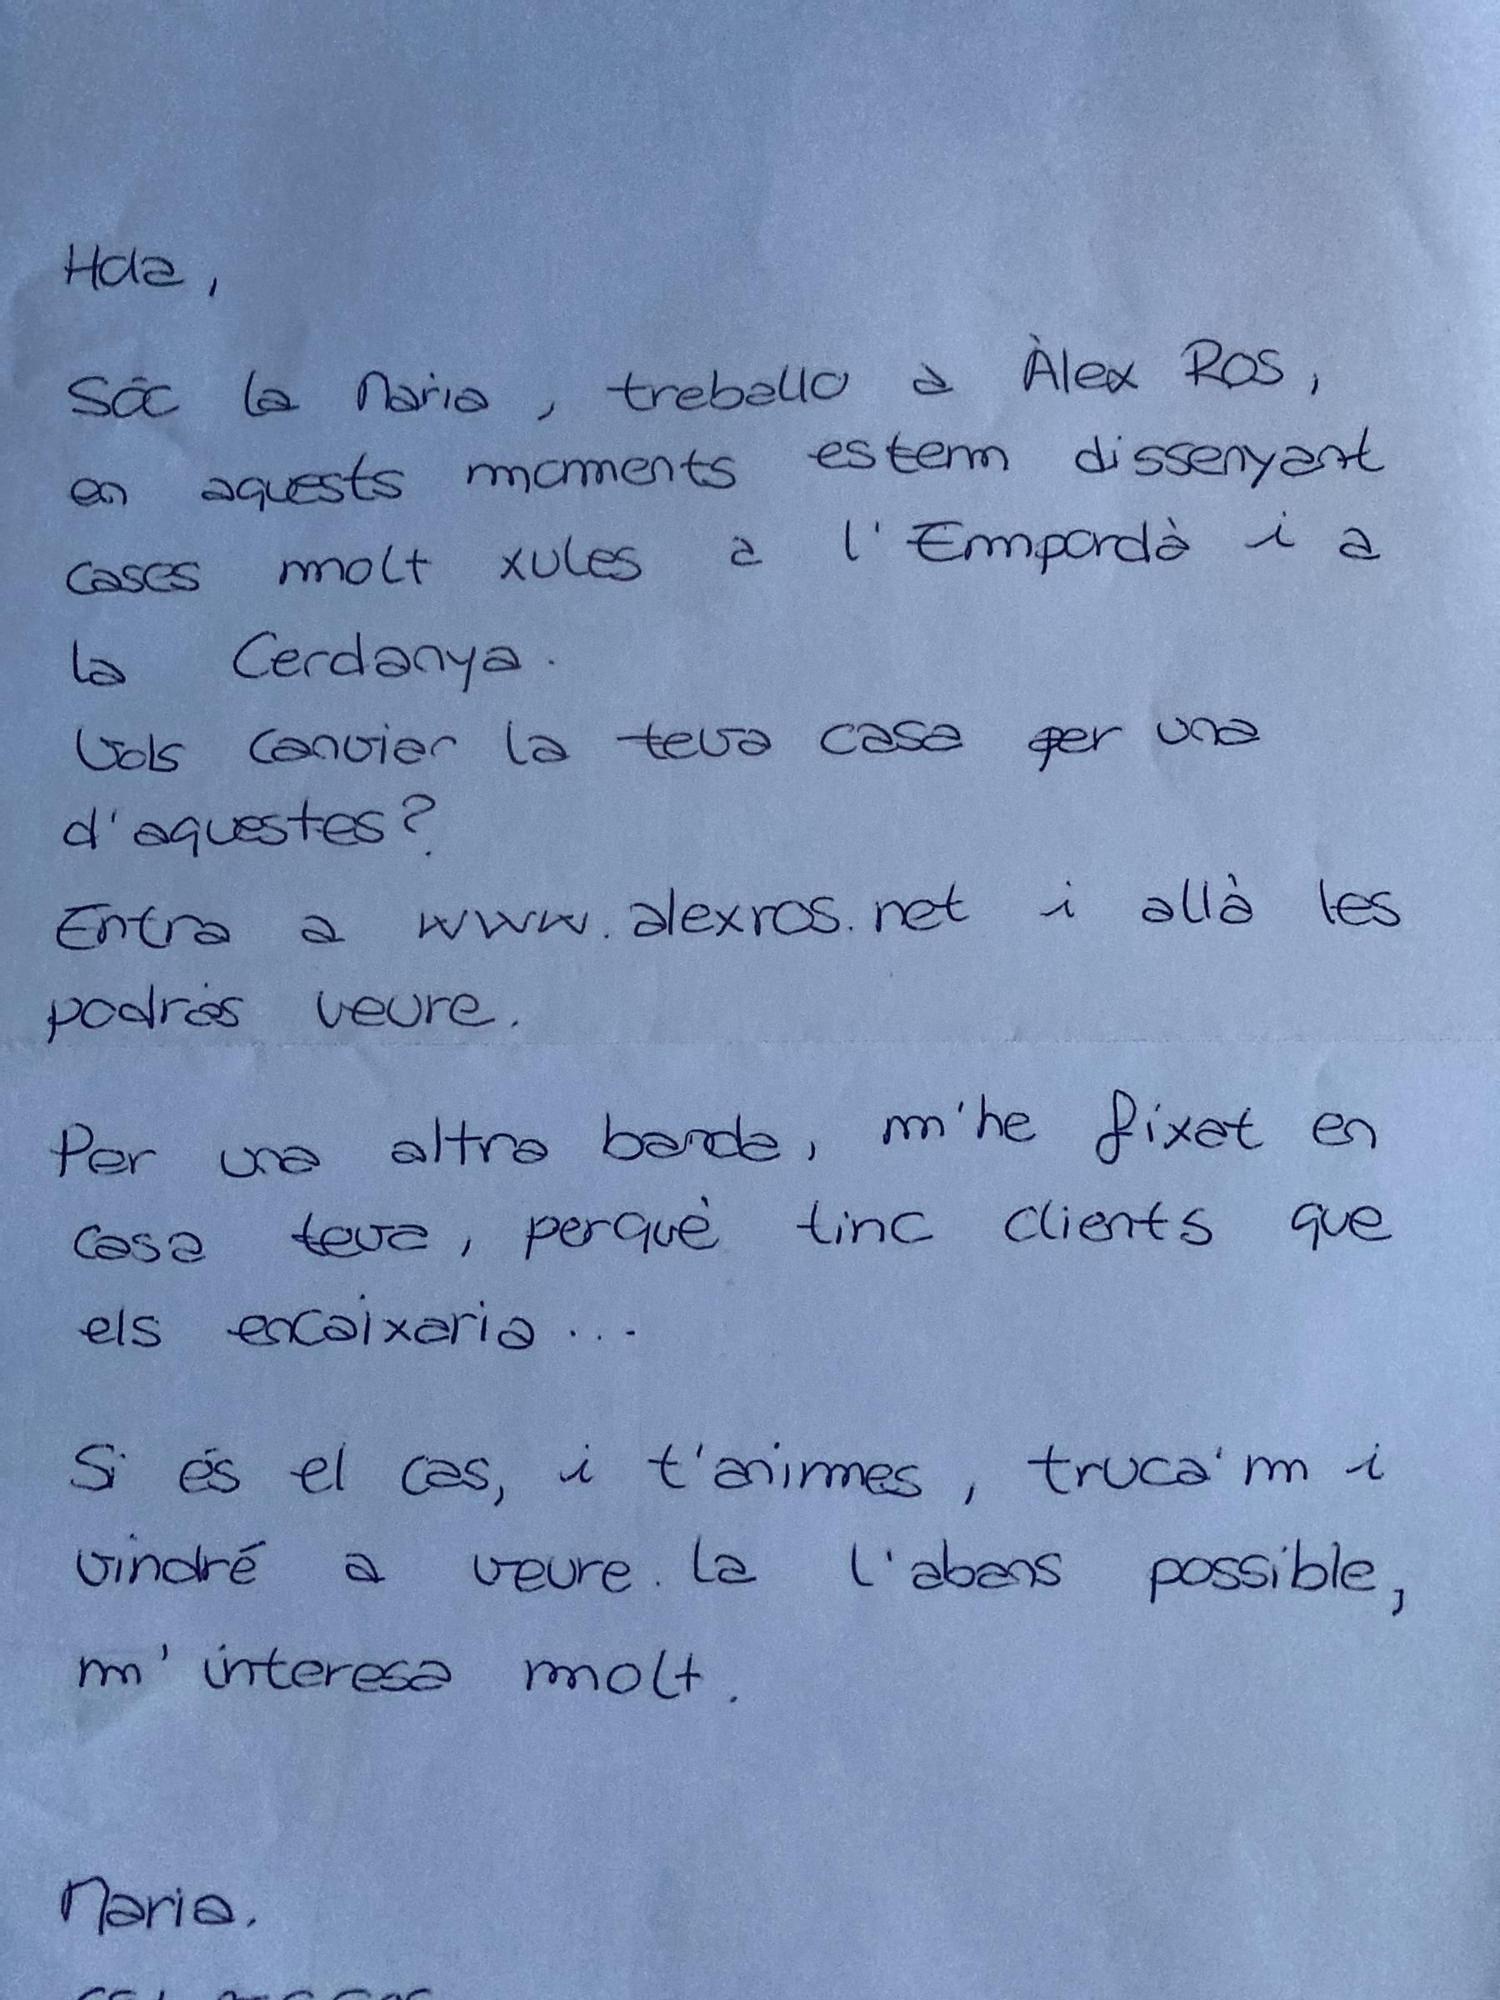 Hola,
Sóc la Maria, treballo a Àlex Ros,
en aquests moments estem dissenyant
cases molt xules a l'Empordà i a
la Cerdanya.
Vols canviar la teva casa per una
d'aquestes?
Entra a www.alexros.net i allà les
podràs veure.
Per una altra banda, m'he fixat en
casa teva, perquè tinc clients que
els encaixaria...
Si és el cas, i t'animes, truca'm i
vindré a veure.la l'abans possible,
m'interesa molt.
Maria.